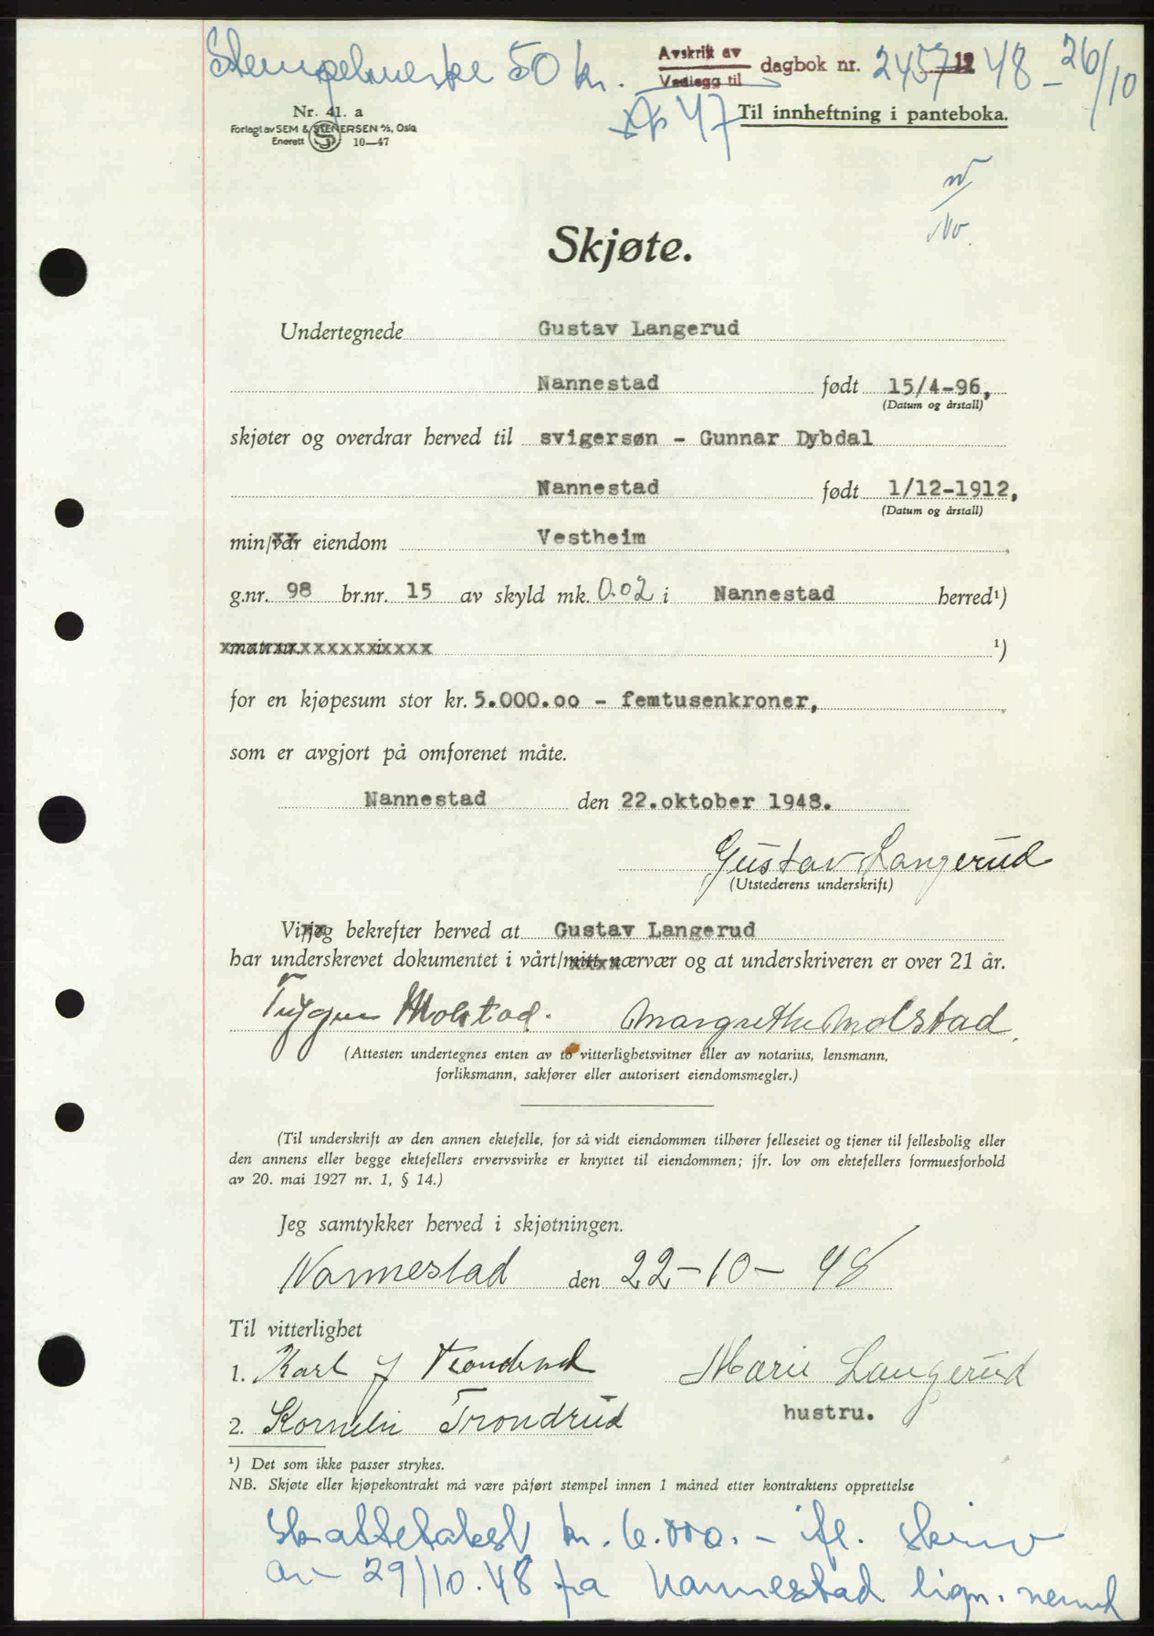 Stempelmerke 50 kr.
Avskrift av
Vedlegg til
dagbok nr. 2457 1948 - 26/10
Nr. 41. a
Forlagt av SEM & STENERSEN A/S, Oslo
Enerett 10—47
47
Til innheftning i panteboka.
No.
Skjøte.
Undertegnede Gustav Langerud
Nannestad født 15/4-96,
(Datum og årstall)
skjøter og overdrar herved til svigersøn - Gunnar Dybdal
Nannestad født 1/12-1912,
(Datum og årstall)
min/vår eiendom Vestheim
g.nr. 98 br.nr. 15 av skyld mk. 0.02 i Nannestad herred¹)
¹)
for en kjøpesum stor kr. 5.000.oo - femtusenkroner,
som er avgjort på omforenet måte.
Nannestad den 22.oktober 1948.
Gustav Langerud
(Utstederens underskrift)
Vi/jeg bekrefter herved at Gustav Langerud
har underskrevet dokumentet i vårt/mitt nærvær og at underskriveren er over 21 år.
Trygve Molstad. Margrethe Molstad
(Attesten undertegnes enten av to vitterlighetsvitner eller av notarius, lensmann,
forliksmann, sakfører eller autorisert eiendomsmegler.)
(Til underskrift av den annen ektefelle, for så vidt eiendommen tilhører felleseiet og tjener til fellesbolig eller
den annens eller begge ektefellers ervervsvirke er knyttet til eiendommen; jfr. lov om ektefellers formuesforhold
av 20. mai 1927 nr. 1, § 14.)
Jeg samtykker herved i skjøtningen.
Nannestad den 22-10-48
Til vitterlighet
1. Karl J Trondrud Marie Langerud
2. Kornelie Trondrud hustru.
¹) Det som ikke passer strykes.
NB. Skjøte eller kjøpekontrakt må være påført stempel innen 1 måned etter kontraktens opprettelse
Skattetakst kr. 6.000.- ifl. skriv
av 29/10.48 fra Nannestad lign. nemnd